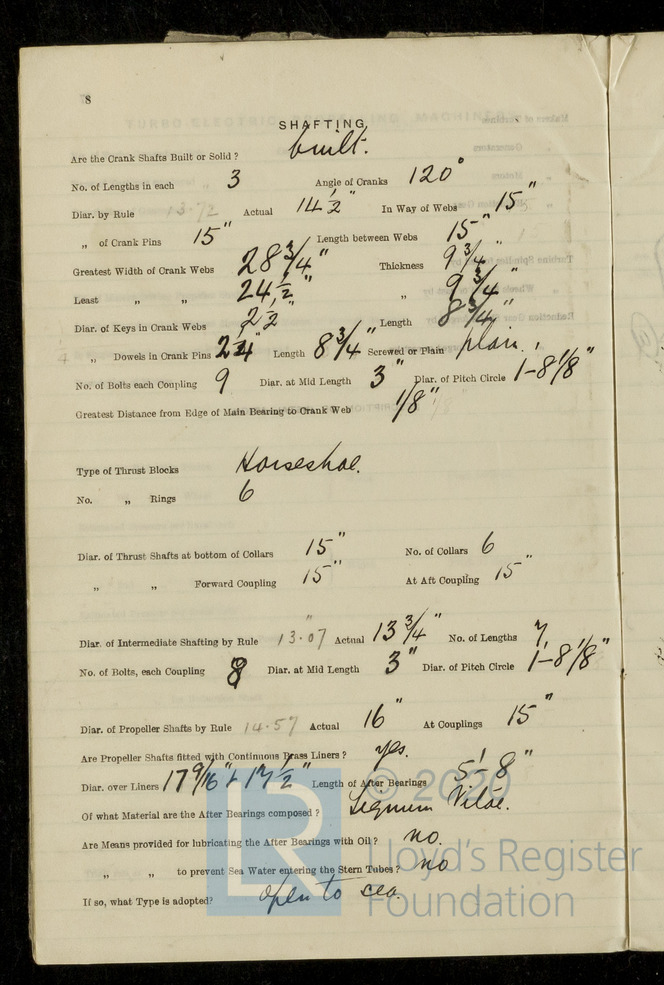 8
SHAFTING
Are the Crank Shafts Built or Solid? built.
No. of Lengths in each 3 Angle of Cranks 120°
Diar. by Rule 13.72 Actual 14 1/2" In Way of Webs 15"
„ of Crank Pins 15" Length between Webs 15"
Greatest Width of Crank Webs 28 3/4" Thickness 9 3/4"
Least „ „ 24 1/2" „ 9 3/4"
Diar. of Keys in Crank Webs 2 1/2" Length 8 3/4"
„ Dowels in Crank Pins Length 8 3/4" Screwed or Plain plain.
No. of Bolts each Coupling 9 Diar. at Mid Length 3" Diar. of Pitch Circle 1-8 1/8"
Greatest Distance from Edge of Main Bearing to Crank Web 1/8"
Type of Thrust Blocks Horseshoe.
No. „ Rings 6
Diar. of Thrust Shafts at bottom of Collars 15" No. of Collars 6
„ „ Forward Coupling 15" At Aft Coupling 15"
Diar. of Intermediate Shafting by Rule 13.07" Actual 13 3/4" No. of Lengths 7,
No. of Bolts, each Coupling Diar. at Mid Length 3" Diar. of Pitch Circle 1-8 1/8"
Diar. of Propeller Shafts by Rule 14.57 Actual 16" At Couplings 15"
Are Propeller Shafts fitted with Continuous Brass Liners? yes.
Diar. over Liners 17 9/16" & 17 1/2" Length of After Bearings 5' 8"
Of what Material are the After Bearings composed? Lignum Vitae.
Are Means provided for lubricating the After Bearings with Oil? no.
„ „ to prevent Sea Water entering the Stern Tubes? no
If so, what Type is adopted? open to sea.
LR © 2020
Lloyd's Register
Foundation